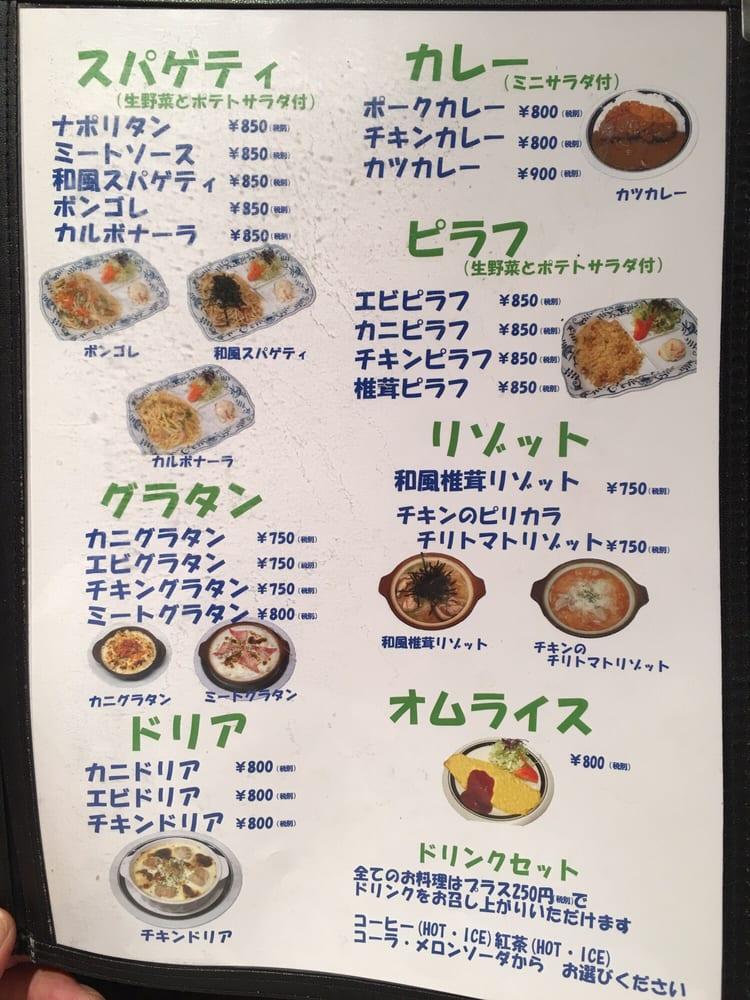 スパゲティ
(生野菜とポテトサラダ付)
ナポリタン ¥850(税別)
ミートソース ¥850(税別)
和風スパゲティ ¥850(税別)
ボンゴレ ¥850(税別)
カルボナーラ ¥850(税別)
ボンゴレ
和風スパゲティ
カルボナーラ
グラタン
カニグラタン ¥750(税別)
エビグラタン ¥750(税別)
チキングラタン ¥750(税別)
ミートグラタン ¥800(税別)
カニグラタン
ミートグラタン
ドリア
カニドリア ¥800(税別)
エビドリア ¥800(税別)
チキンドリア ¥800(税別)
チキンドリア
カレー
(ミニサラダ付)
ポークカレー ¥800(税別)
チキンカレー ¥800(税別)
カツカレー ¥900(税別)
カツカレー
ピラフ
(生野菜とポテトサラダ付)
エビピラフ ¥850(税別)
カニピラフ ¥850(税別)
チキンピラフ ¥850(税別)
椎茸ピラフ ¥850(税別)
リゾット
和風椎茸リゾット ¥750(税別)
チキンのピリカラ
チリトマトリゾット ¥750(税別)
和風椎茸リゾット
チキンの
チリトマトリゾット
オムライス
¥800(税別)
ドリンクセット
全てのお料理はプラス250円(税別)で
ドリンクをお召し上がりいただけます
コーヒー(HOT・ICE)紅茶(HOT・ICE)
コーラ・メロンソーダから お選びください